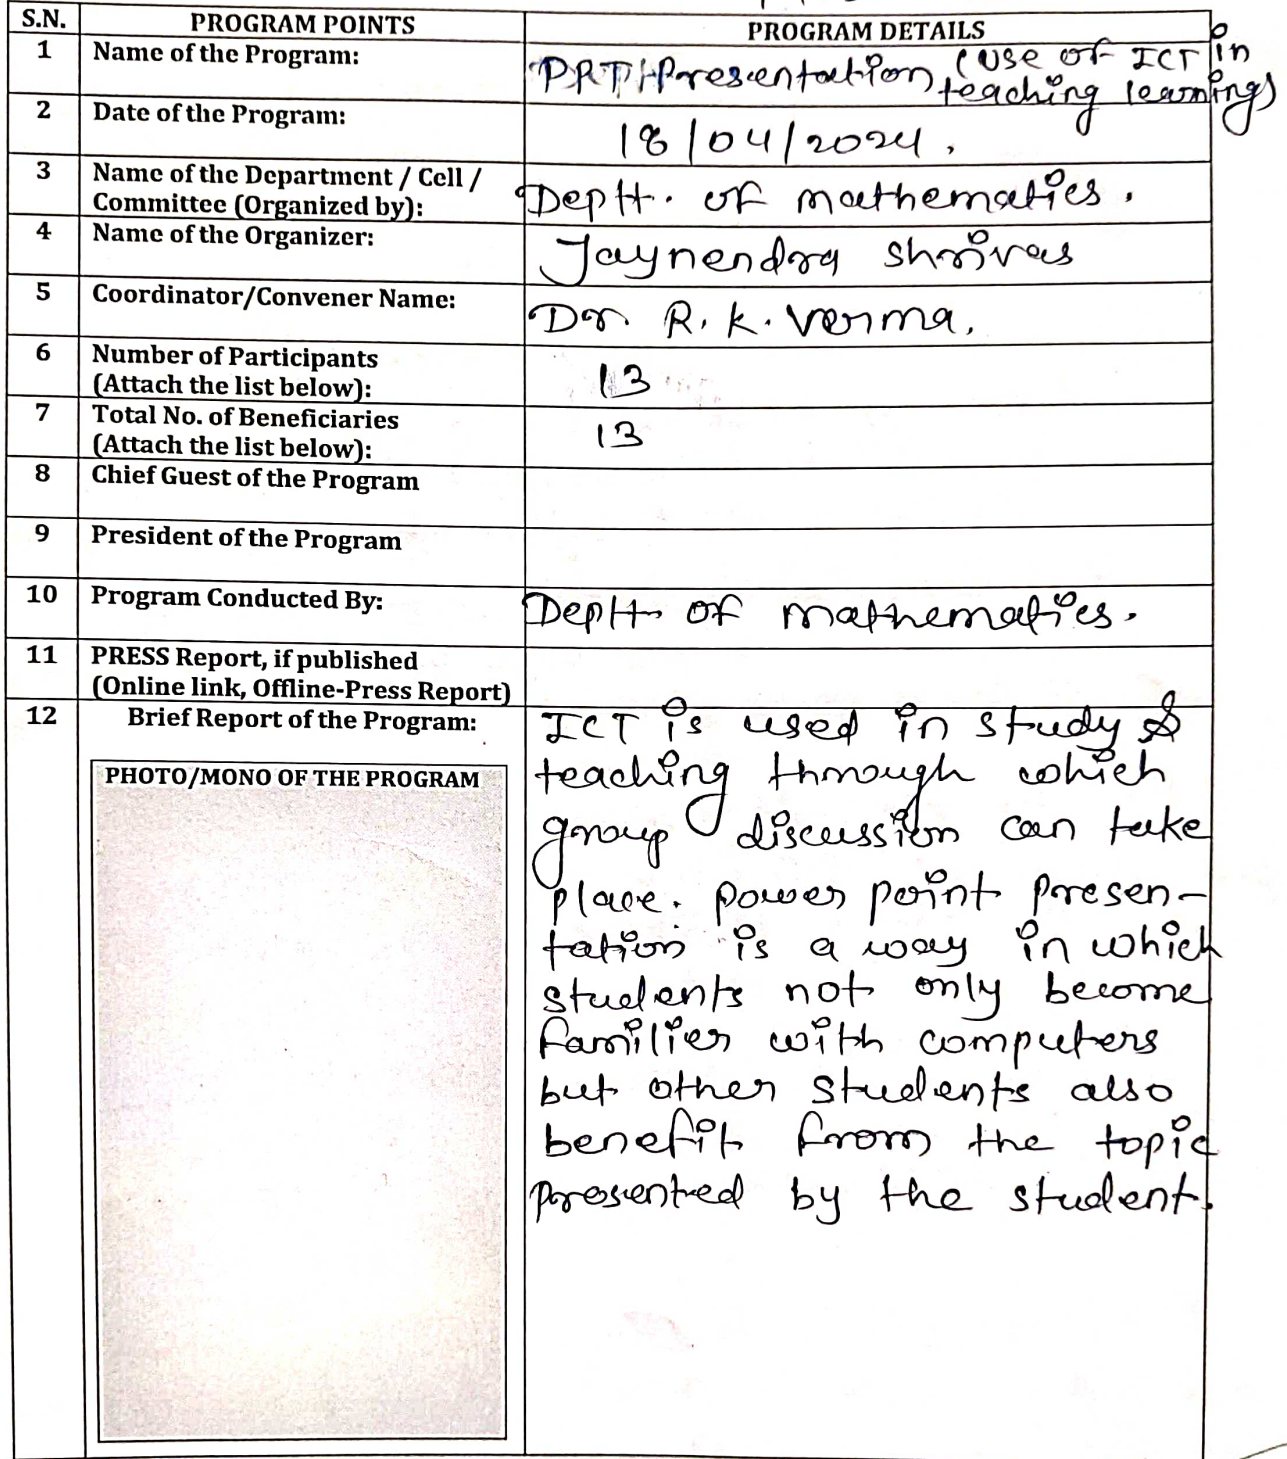 S.N. PROGRAM POINTS PROGRAM DETAILS
1 Name of the Program: PPT Presentation (Use of ICT in
teaching learning)
2 Date of the Program: 18/04/2024.
3 Name of the Department / Cell /
Committee (Organized by): Deptt. of mathematics.
4 Name of the Organizer: Jaynendra Shrivas
5 Coordinator/Convener Name: Dr. R. K. Verma.
6 Number of Participants
(Attach the list below): 13
7 Total No. of Beneficiaries
(Attach the list below): 13
8 Chief Guest of the Program
9 President of the Program
10 Program Conducted By: Deptt of mathematics.
11 PRESS Report, if published
(Online link, Offline-Press Report)
12 Brief Report of the Program:
PHOTO/MONO OF THE PROGRAM
ICT is used in study &
teaching through which
group discussion can take
place. power point presen-
tation is a way in which
students not only become
familier with computers
but other students also
benefit from the topic
presented by the student.